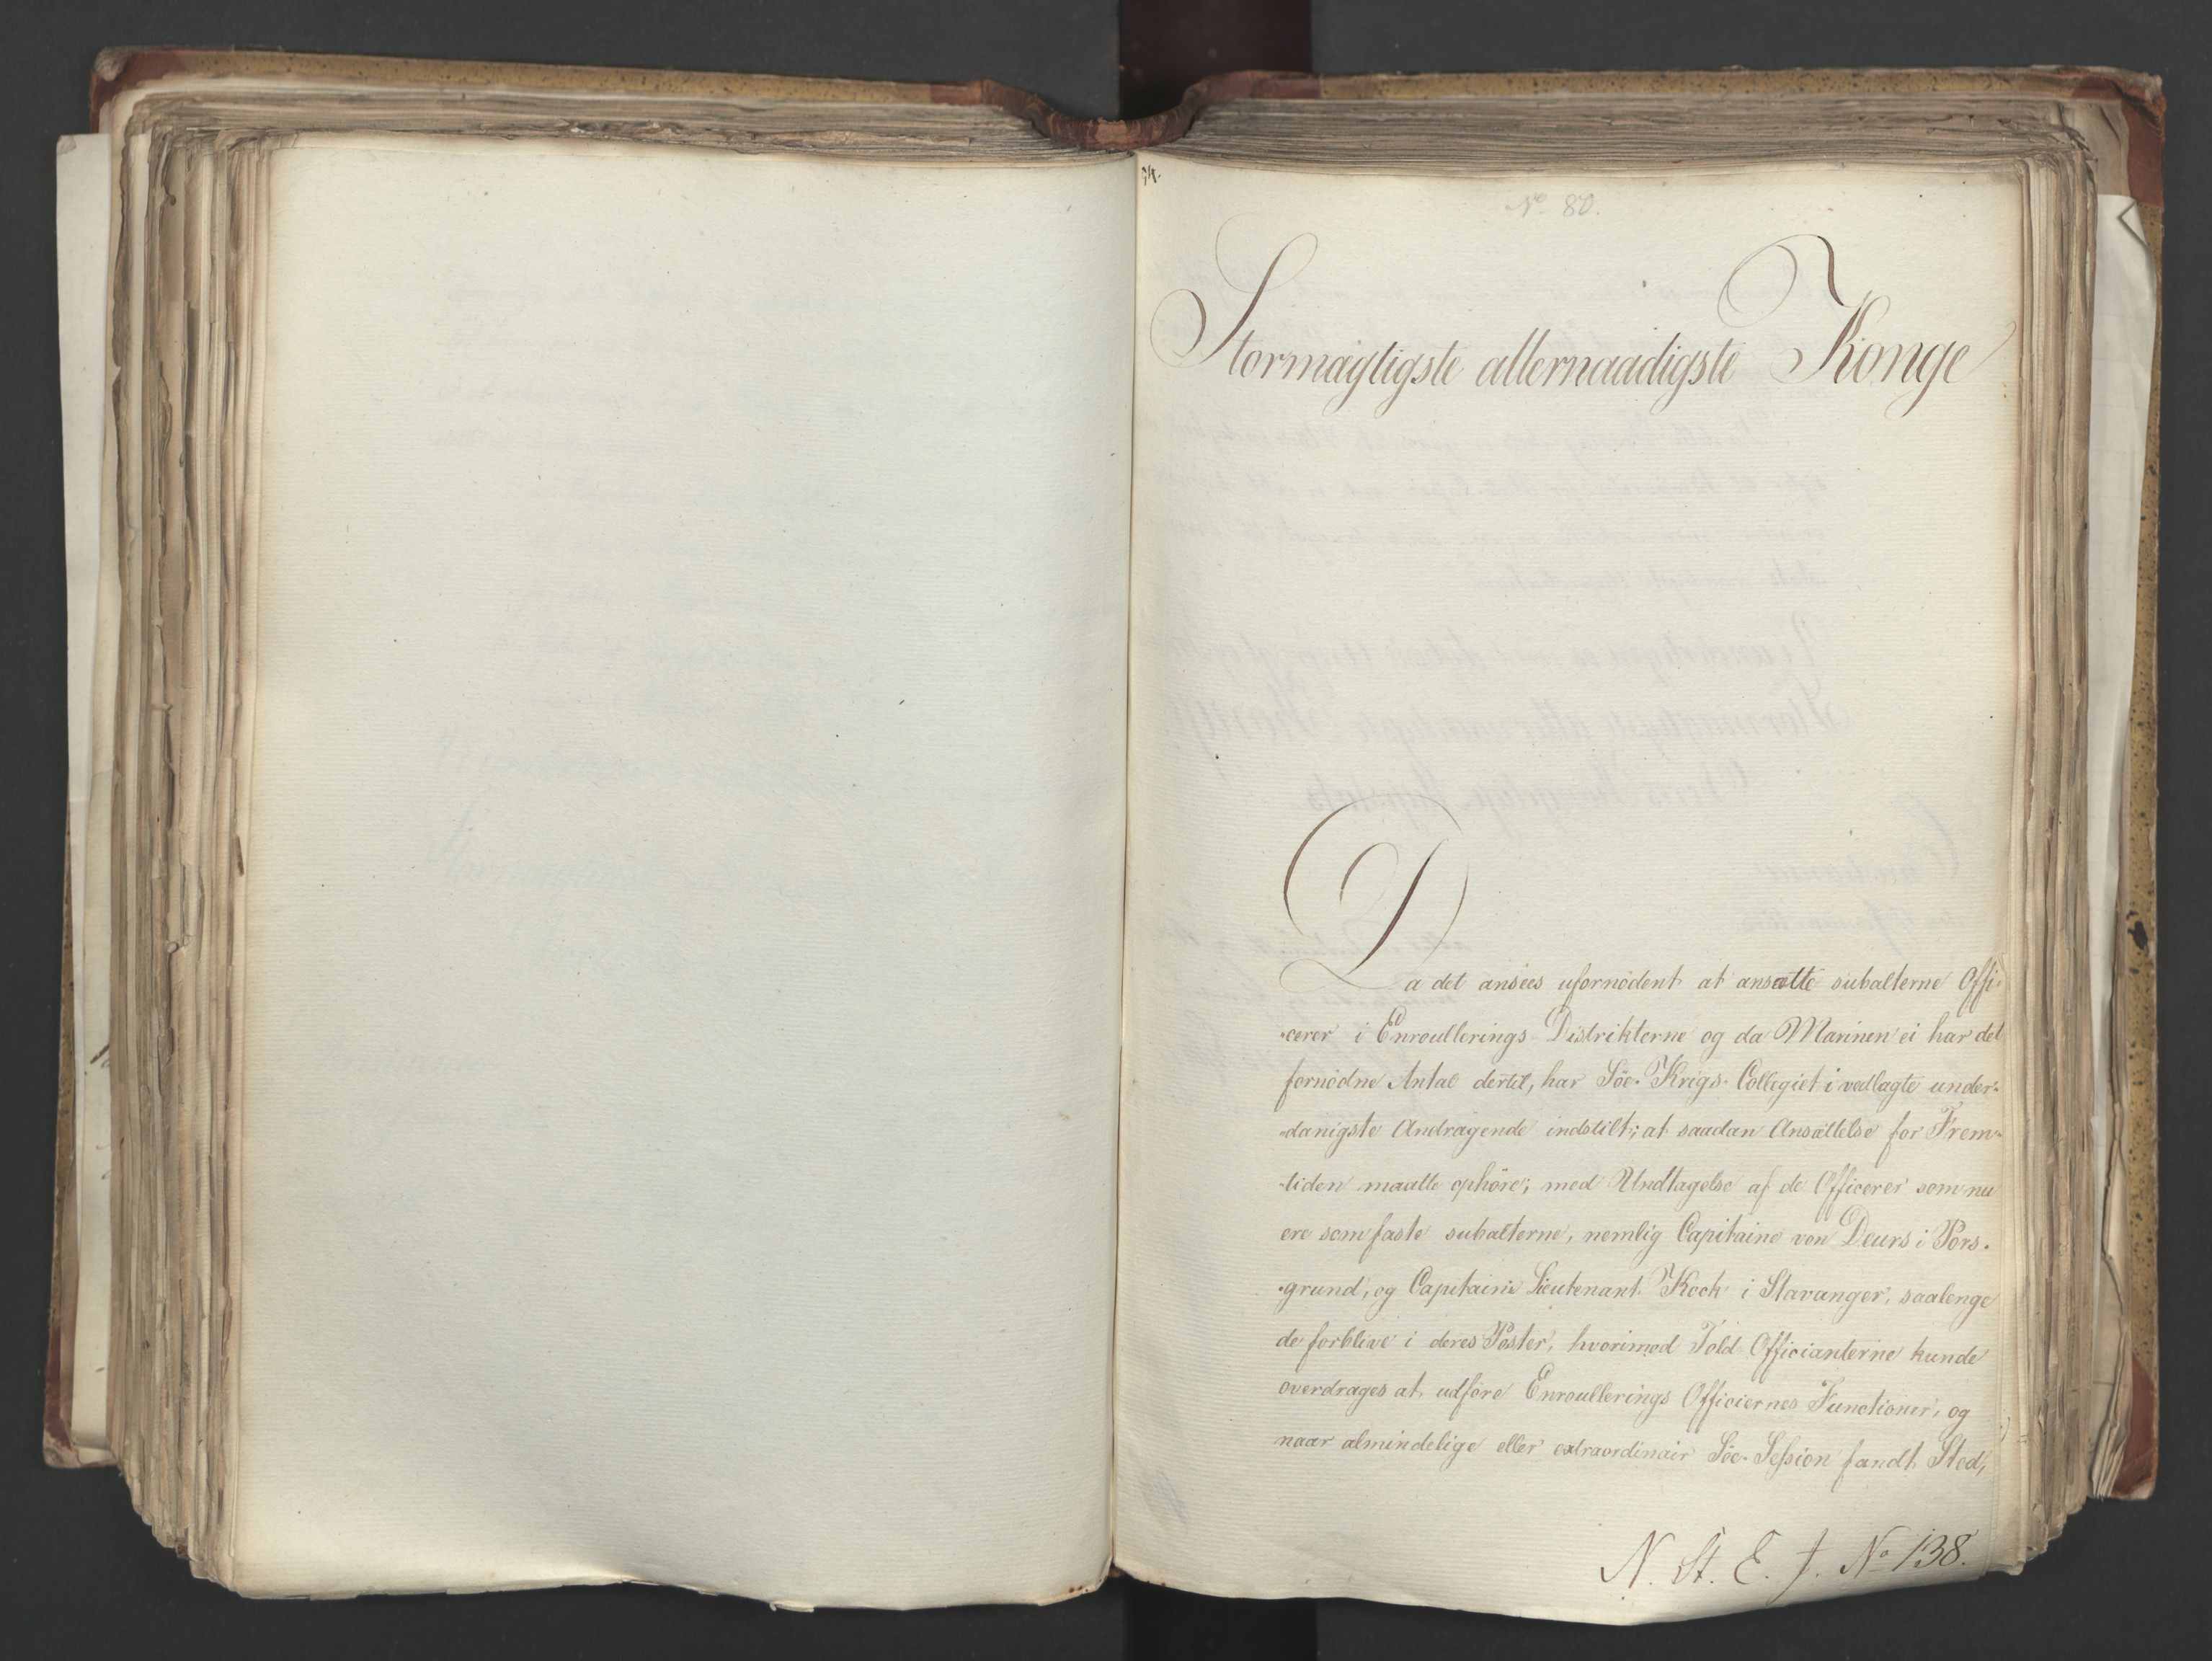 No 80.
Stormægtigste allernaadigste Konge
Da det ansees ufornödent at ansætte subalterne Offi-
-cerer i Enroullerings Distrikterne og da Marinen ei har det
fornödne Antal dertil, har Söe-Krigs-Collegiet i vedlagte under-
-danigste Andragende indstilt; at saadan Ansættelse for Frem-
-tiden maatte ophöre; med Undtagelse af de Officerer som nu
ere som faste subalterne, nemlig Capitaine von Deurs i Pors-
-grund, og Capitaine Lieutenant Kock i Stavanger, saalenge
de forblive i deres Poster, hvorimod Told Officianterne kunde
overdrages at udföre Enroullerings Officiernes Functioner, og
naar almindelige eller extraordinair Söe-Session fandt Sted,
N. St. E. J. No 138.